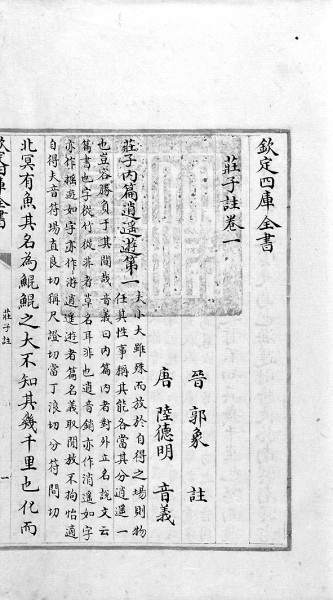 欽定四庫全書
莊子註卷一
晉 郭象 註
唐 陸德明 音義
莊子內篇逍遙遊第一
夫小大雖殊而放於自得之場則物
任其性事稱其能各當其分逍遙一
也豈容勝負于其間哉音義曰內篇內者對外立名說文云
篇書也字從竹從草者草名耳非也逍音銷亦作消遙如字
亦作搖遊如字亦作游逍遙遊者篇名義取閒放不拘怡適
自得夫音符場直良切稱尺證切當丁浪切分符問切
北冥有魚其名為鯤鯤之大不知其幾千里也化而
欽定四庫全書
莊子註
一